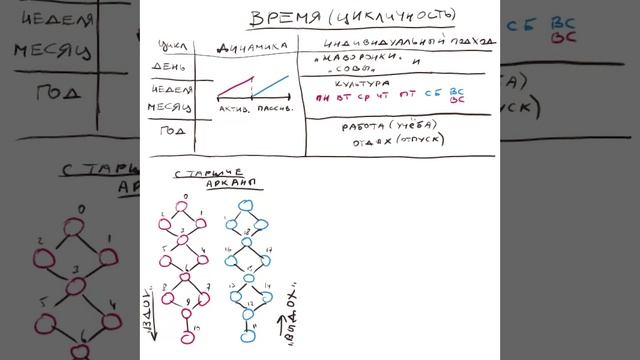 ВРЕМЯ (ЦИКЛИЧНОСТЬ)
ЦИКЛ ДИНАМИКА ИНДИВИДУАЛЬНЫЙ ПОДХОД
ДЕНЬ „ЖАВОРОНКИ" И „СОВЫ"
НЕДЕЛЯ КУЛЬТУРА
МЕСЯЦ АКТИВ. ПАССИВ. ПН ВТ СР ЧТ ПТ СБ ВС
ВС
ГОД РАБОТА (УЧЁБА)
ОТДЫХ (ОТПУСК)
СТАРШИЕ
АРКАНЫ
0
2 1
3 18
5 4 16 17
6 15
8 7 13
9 12
10 11
„ВДОХ" „ВЫДОХ"
НЕДЕЛЯ СБ ВС
МЕСЯЦ ВС
ГОД
СТАРШИЕ
0
2 1
3
5 4
6